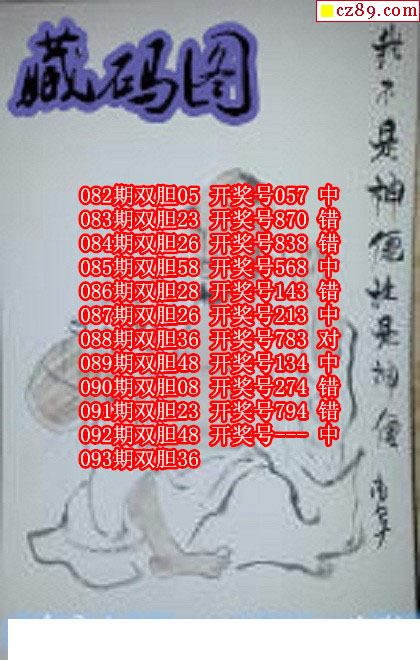 cz89.com
藏码图
082期双胆05 开奖号057 中
083期双胆23 开奖号870 错
084期双胆26 开奖号838 错
085期双胆58 开奖号568 中
086期双胆28 开奖号143 错
087期双胆26 开奖号213 中
088期双胆36 开奖号783 对
089期双胆48 开奖号134 中
090期双胆08 开奖号274 错
091期双胆23 开奖号794 错
092期双胆48 开奖号--- 中
093期双胆36
我不是神僊 是神僊